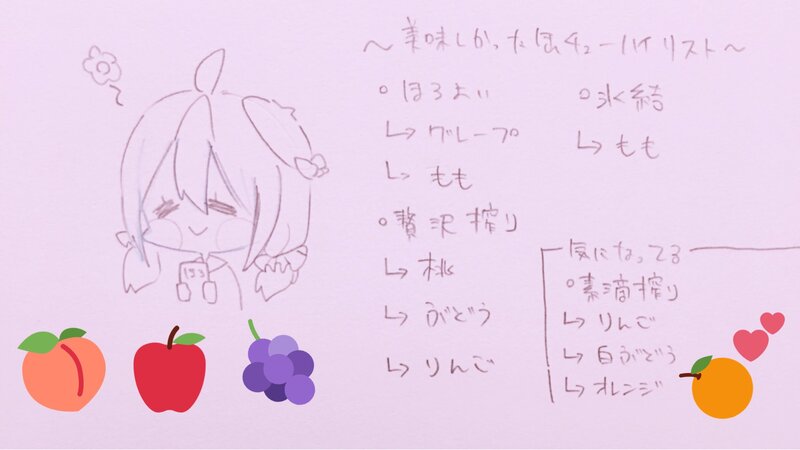 ～美味しかった缶チューハイリスト～
○ほろよい
↳グレープ
↳もも
○贅沢搾り
↳桃
↳ぶどう
↳りんご
○氷結
↳もも
気になってる
○素滴搾り
↳りんご
↳白ぶどう
↳オレンジ
ほろ